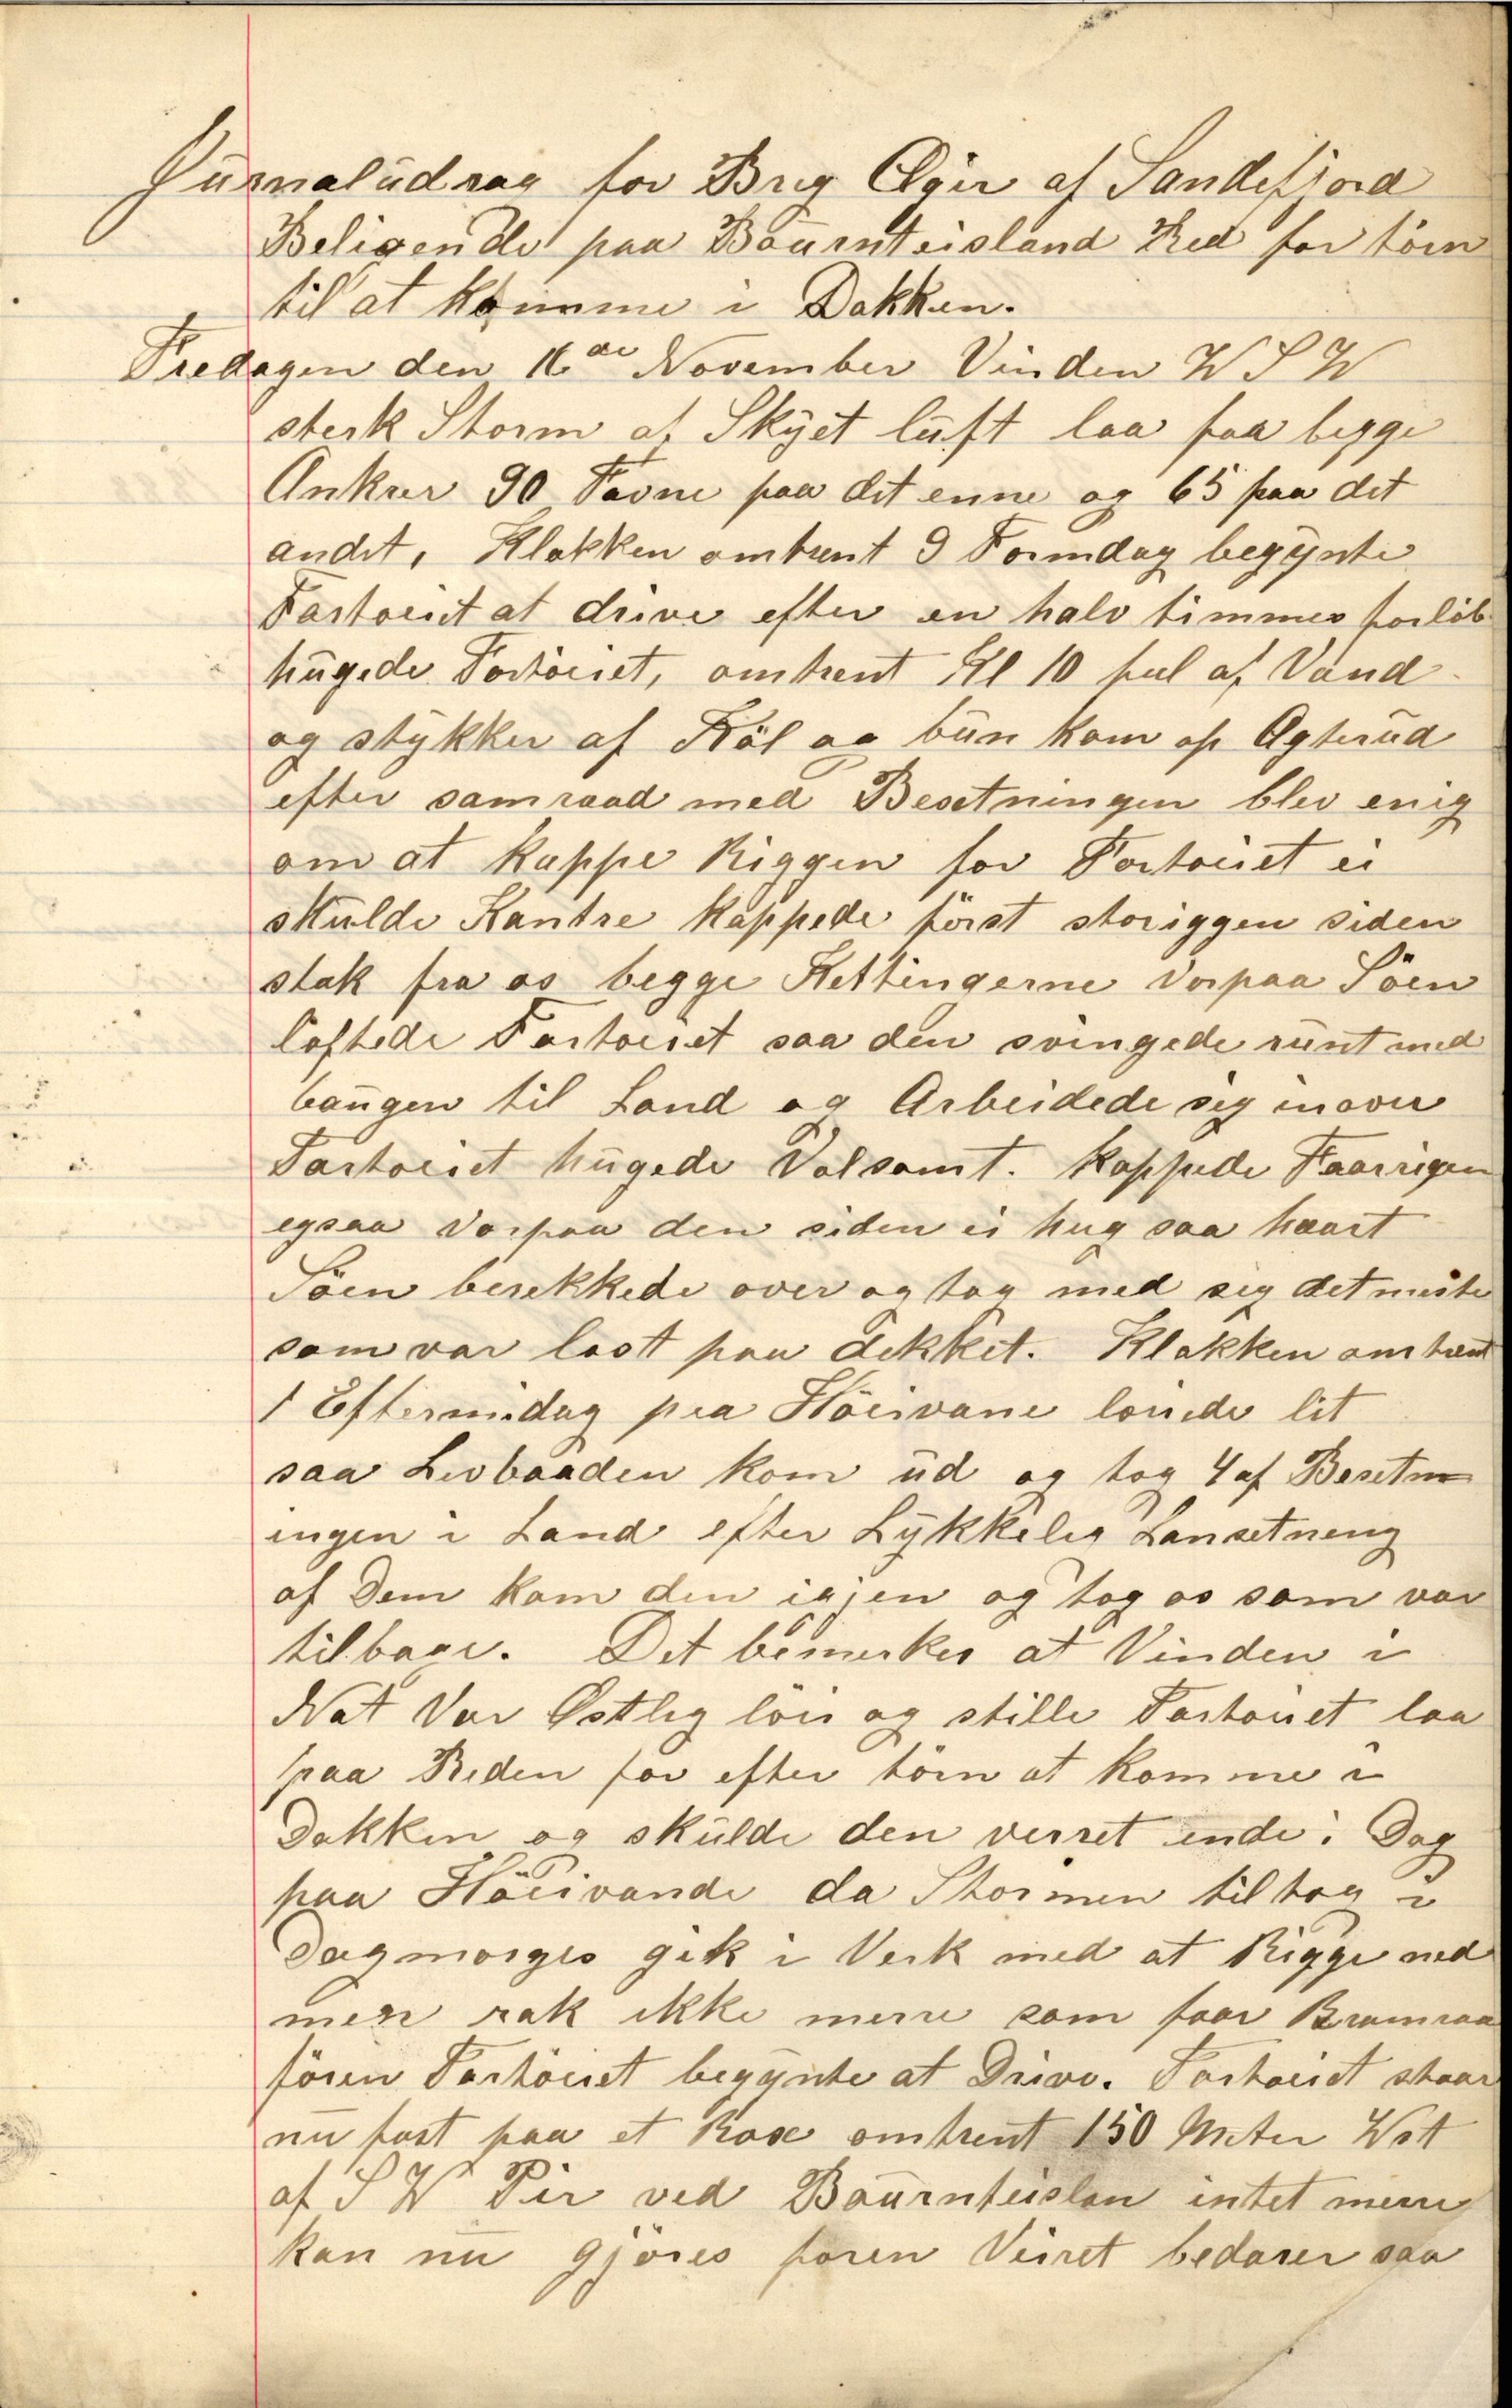 Jurnaludrag for Brig Ægir af Sandefjord
Beligende paa Baurnteisland Red for törn
til at komme i Dokken.
Fredagen den 16de November Vinden W S W
sterk Storm af Skyet luft laa faa begge
Ankrer 90 Favne paa det enne og 65 paa det
andet, Klokken omtrent 9 Formdag begynte
Fartoeiet at drive efter en halv timmes forlöb
hugede Fartöeiet, omtrent Kl 10 ful af Vand
og stykker af Köl og bun kom op Agterud
efter samraad med Besetningen blev enig
om at kappe Riggen for Fartoeiet ei
skulde Kantre kappede först storiggen siden
stak fra os begge Kettingerne Vorpaa Söen
loftede Fartoeiet saa den svingede runt med
baugen til Land og Arbeidede sig inover
Fartoeiet hugede Volsomt. kappede Faarrigen
egsaa Vorpaa den siden ei hug saa haart
Söen berekkede over og tog med seg det meste
som var lost paa dekket. Klokken omtrent
1 Eftermidag pea Höeivane loiiede lit
saa Livbaaden kom ud og tog 4 af Besetn
ingen i Land efter Lykkeleg Lansetneng
af Dem kom den igjen og tog os som var
tilbage. Det bemerkes at Vinden i
Nat Var Østleg löei og stille Fartoiet laa
paa Reden for efter törn at komme i
Dokken og skulde den verret inde i Dag
paa Höeivande da Stormen tiltog i
Dagmorges gik i Verk med at Rigge ned
men rak ikke merre som faar Bramraa
fören Fartöeiet begynte at Drive. Fartoeiet staar
nu fast paa et Rose omtrent 150 Meter West
af S W Pir ved Baurnteislan intet merre
kan nu gjöres foren Veiret bedarer saa